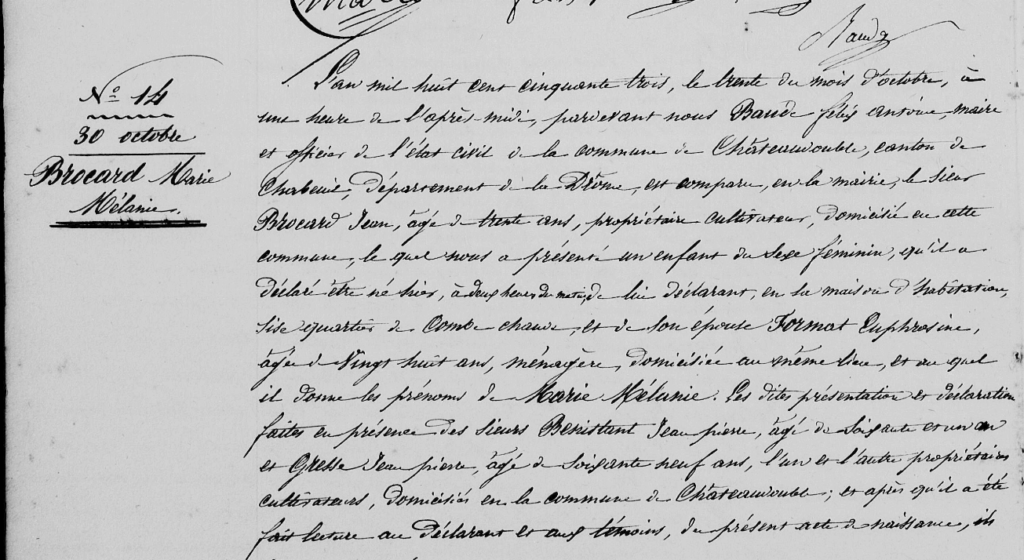 Baude
Nº 14
30 octobre
Brocard Marie
Mélanie.
L'an mil huit cent cinquante trois, le trente du mois d'octobre, à
une heure de l'après-midi, pardevant nous Baude félix antoine, maire
et officier de l'état civil de la commune de Châteaudouble, canton de
Chabeuil, département de la Drôme, est comparu, en la mairie, le sieur
Brocard Jean, âgé de trente ans, propriétaire cultivateur, domicilié en cette
commune, le quel nous a présenté un enfant du sexe féminin, qu'il a
déclaré être né hier, à deux heures du matin, de lui déclarant, en sa maison d'habitation,
sise quartier de Combe chaude, et de son épouse Format Euphrosine,
âgée de Vingt huit ans, ménagère, domiciliée au même lieu, et au quel
il donne les prénoms de Marie Mélanie. Les dites présentation et déclaration
faites en présence des sieurs Benistant Jean pierre, âgé de soixante et un an
et Gresse Jean pierre, âgé de soixante neuf ans, l'un et l'autre propriétaires
cultivateurs, domiciliés en la commune de Châteaudouble; et après qu'il a été
fait lecture au déclarant et aux témoins, du présent acte de naissance, ils